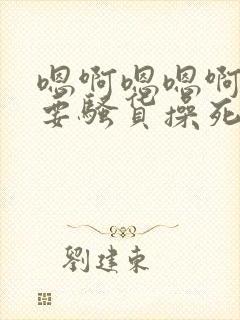 嗯啊嗯嗯啊
要骚货操死
劉建東